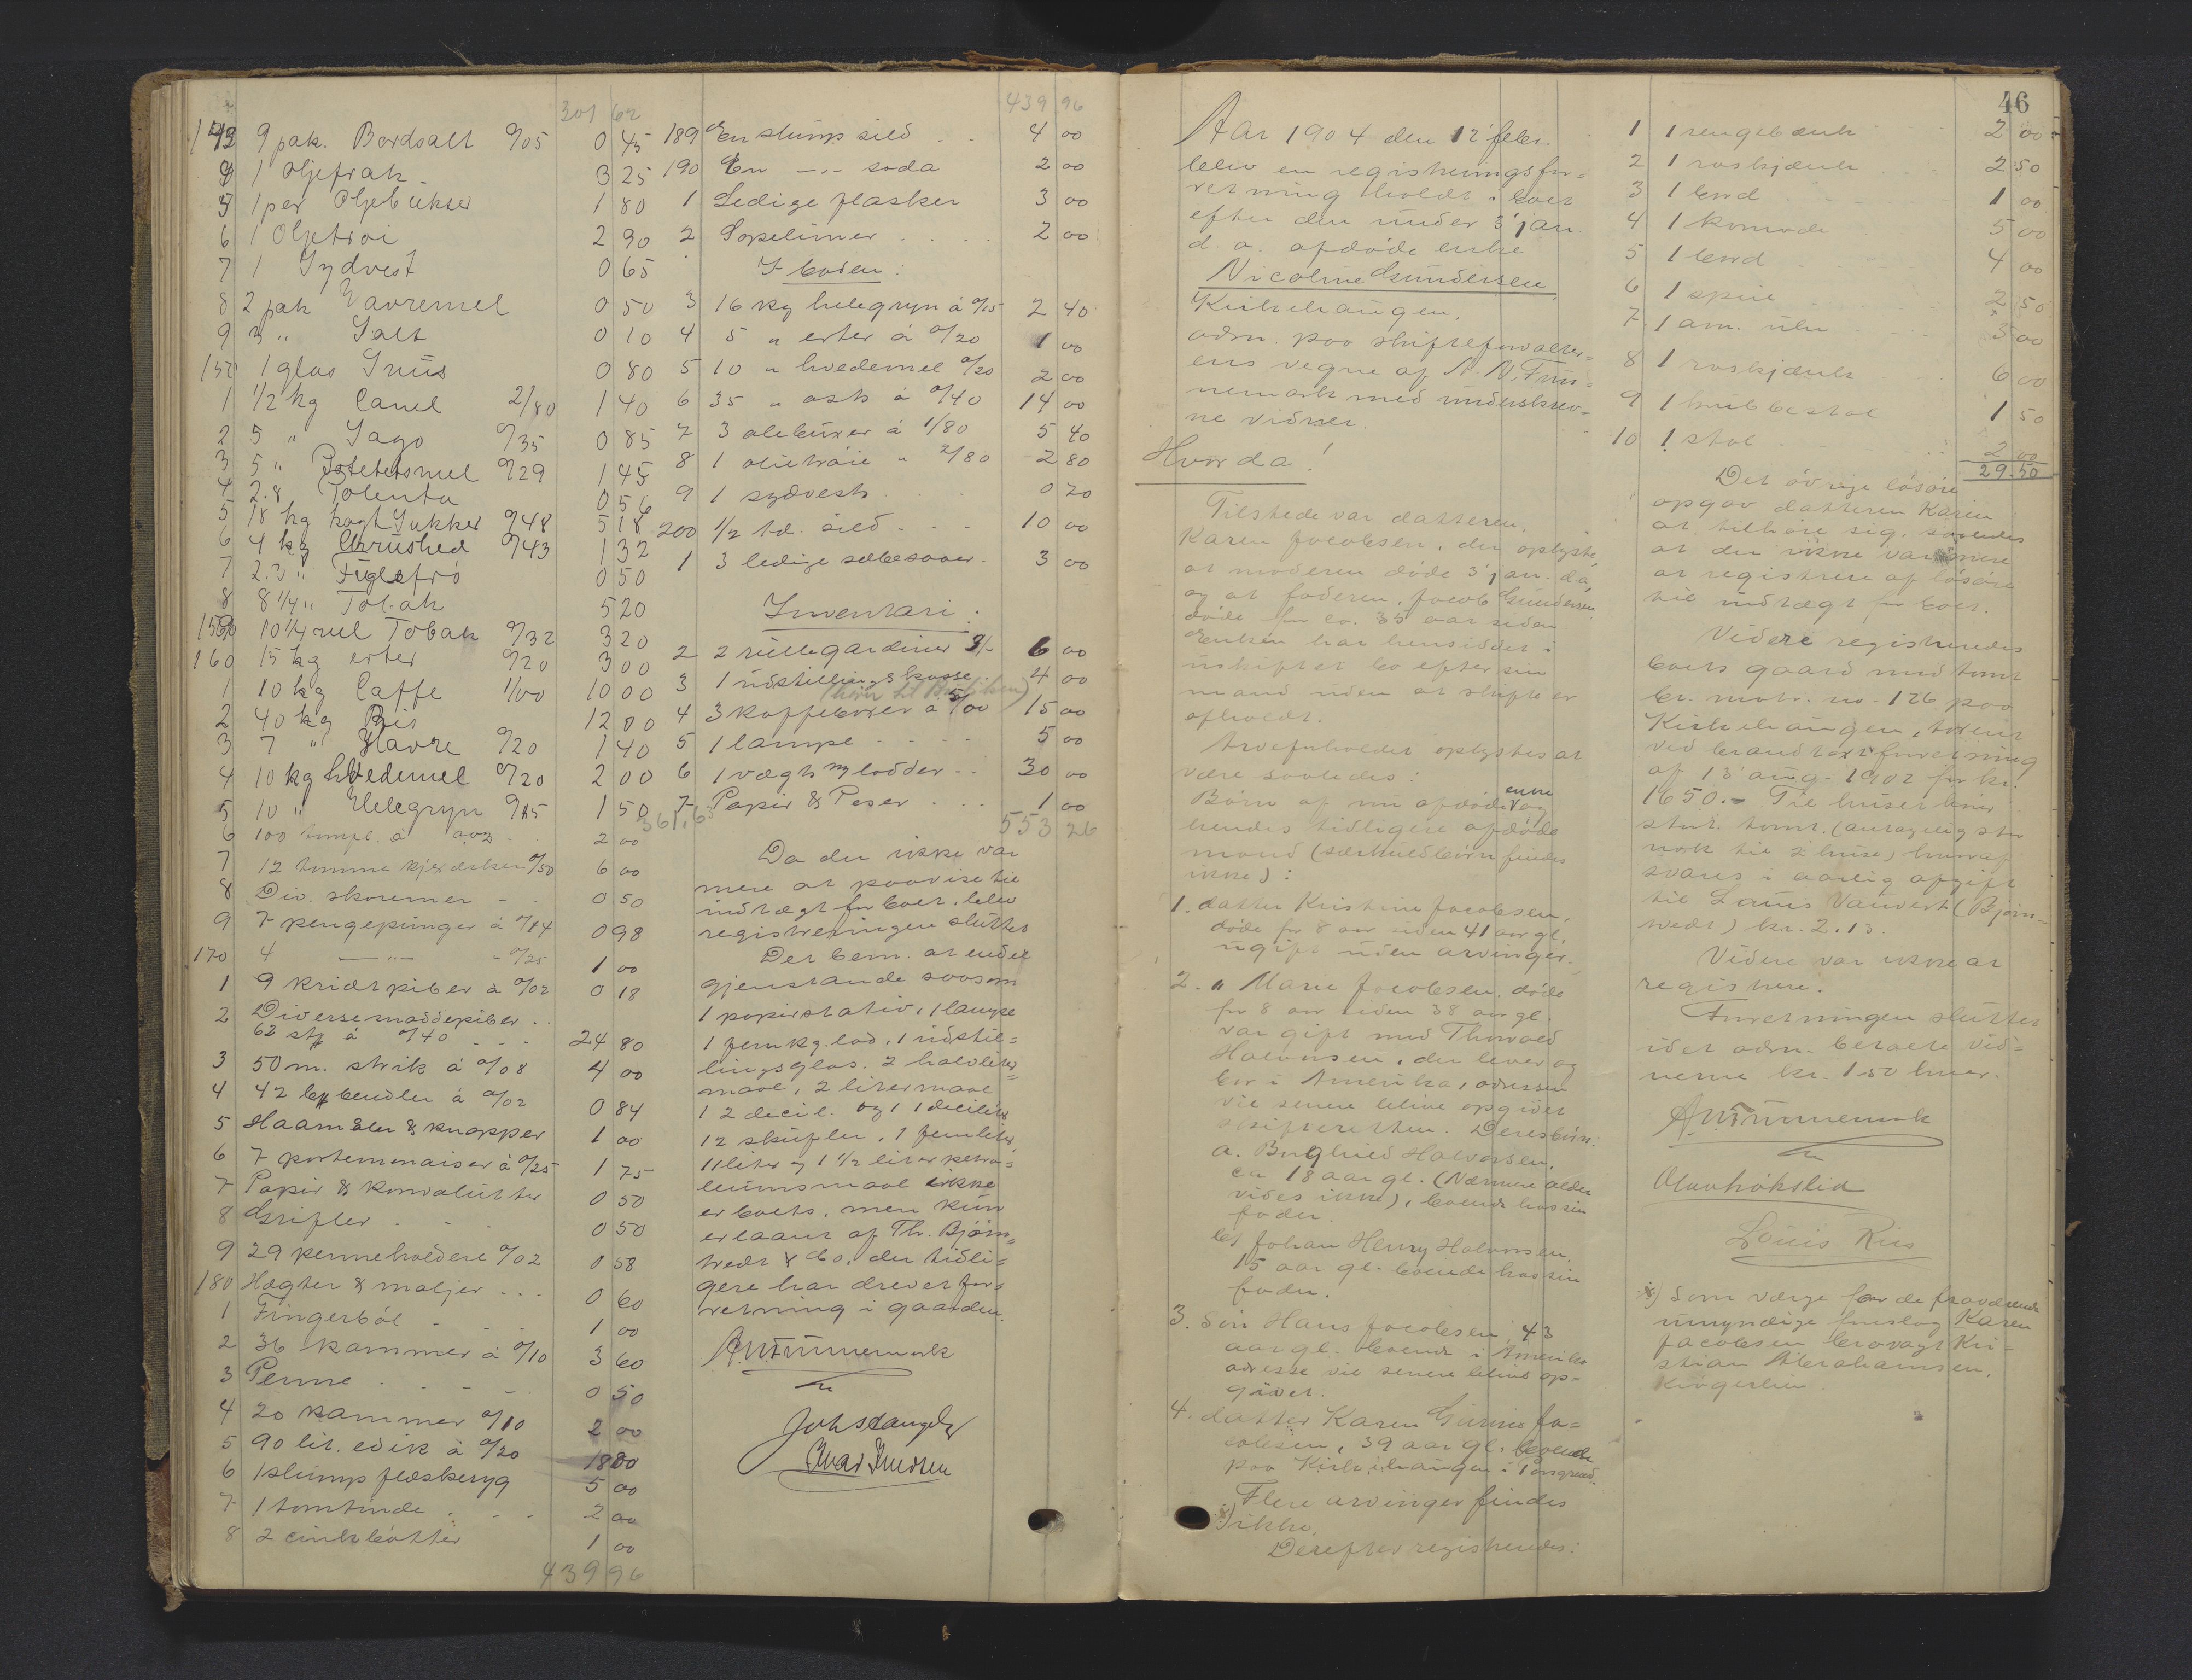 301 62
143 9 pak. Bordsalt 0/05 0 45
4 1 Oljefrak 3 25
5 1 par Oljebukser 1 80
6 1 Oljetrøi 2 90
7 1 Sydvest 0 65
8 2 pak Havremel 0 50
9 3 " Salt 0 10
150 1 glas Snus 0 80
1 1/2 kg Canel 2/80 1 40
2 5 " Sago 0/35 0 85
3 5 " Potetetsmel 0/29 1 45
4 2.8 Polenta 0 56
5 18 kg hagt Sukker 0/48 5 18
6 4 kg Chrushed 0/43 1 32
7 2.3 " Fuglefrö 0 50
8 8 1/4 " Tobak 5 20
159 10 1/4 rul Tobak 0/32 3 20
160 15 kg erter 0/20 3 00
1 10 kg Caffe 1/00 10 00
2 40 kg Ris 12 00
3 7 " Havre 0/20 1 40
4 10 kg hvedemel 0/20 2 00
5 10 " Helegryn 0/15 1 50
361,63
6 100 à 2 00
7 12 tomme kjexæsker 0/50 6 00
8 Div. skoremer 0 50
9 7 pengepunger à 0/14 0 98
170 4 —"— " 0/25 1 00
1 9 kridtpiber à 0/02 0 18
2 Diverse maddepiber . .
62 stk à 0/40 24 80
3 50 m. strik à 0/08 4 00
4 42 bendler à 0/02 0 84
5 Haarnaler & knapper 1 00
6 7 portemonaiser à 0/25 1 75
7 Papir & konvolutter 0 50
8 Grifler 0 50
9 29 penneholdere 0/02 0 58
180 Hægter & maljer . . . 0 60
1 Fingerböl 1 00
2 36 kammer à 0/10 3 60
3 Penne 0 50
4 20 kammer 0/10 2 00
5 90 lit. edik à 0/20 18 00
6 1 slump flæskeryg 5 00
7 1 tomtønde 2 00
8 2 cinkbötter 1 00
439 96
439 96
189 En slump sild 4 00
190 En —"— soda 2 00
1 Ledige flasker 3 00
2 Sopelimer 2 00
I boden:
3 16 kg helegryn à 0/15 2 40
4 5 " erter à 0/20 1 00
5 10 " hvedemel 0/20 2 00
6 35 " ost à 0/40 14 00
7 3 oljebuxer à 1/80 5 40
8 1 olietröie " 2/80 2 80
9 1 sydvest 0 70
200 1/2 td. sild 10 00
1 3 ledige sæbesaaer 3 00
Inventari:
2 2 rullegardiner 3/- 6 00
3 1 udstillingskasse 4 00
4 3 kaffebörser à 5/00 15 00
5 1 lampe 5 00
6 1 vægt m/ lodder 30 00
7 Papir & Poser 1 00
553 26
Da der ikke var
mere at paavise til
indtægt for boet, blev
registreringen sluttet
Det bem. at endel
gjenstande saasom
1 papirstativ, 1 lampe
1 fem kg. lod, 1 udstil=
lingsglas, 2 halvliter=
maal, 2 litermaal
1 2 decil. og 1 1 deciliter
12 skufler, 1 femliter,
1 1 liter og 1 1/2 liter petro=
leumsmaal ikke
er boets, men kun
er laant af Th. Björn=
vedt & Co, der tidli=
gere har drevet for=
retning i gaarden.
A. N. Tunnemark
46
Aar 1904 den 12' febr.
blev en registreringsfor=
retning holdt i boet
efter den under 3' jan
d. a. afdöde enke
Nicoline Gundersen
Kirkehaugen,
adm. paa skifteforvalter=
ens vegne af A. N. Tun=
nemark med underskrev=
ne vidner.
Hvorda!
Tilstede var datteren
Karen Jacobsen, der oplyste,
at moderen döde 3' jan. d.a,
og at faderen, Jacob Gundersen
döde for ca. 35 aar siden
Enken har hensiddet i
uskiftet bo efter sin
mand uden at skifte er
afholdt.
Arveforholdet oplystes at
være saaledes:
Börn af nu afdöde enke og
hendes tidligere afdöde
mand (særkuldbörn findes
ikke):
1. datter Kristine Jacobsen,
döde for 8 aar siden 41 aar gl.
ugift uden arvinger.
2. " Marie Jacobsen, döde
for 8 aar siden 38 aar gl.
var gift med Thorvald
Halvorsen, der lever og
bor i Amerika, adressen
vil senere blive opgivet
skifteretten. Deres börn:
a. Borghild Halvorsen,
ca 18 aar gl. (Nærmere alder
vides ikke), boende hos sin
fader.
b. Johan Henry Halvorsen,
15 aar gl. boende hos sin
fader.
3. Sön Hans Jacobsen, 43
aar gl. boende i Amerika
adresse vil senere blive op=
givet.
4. datter Karen Gurine Ja=
cobsen, 39 aar gl. boende
paa Kirkehaugen i Porsgrund.
Flere arvinger findes
x) ikke.
Derefter registreredes:
1 1 sengebænk 2 00
2 1 vaskjænk 2 50
3 1 bord 1 00
4 1 komode 5 00
5 1 bord 4 00
6 1 speil 2 50
7 1 am. uhr 3 00
8 1 vaskjænk 6 00
9 1 kubbestol 1 50
10 1 stol 2 00
29.50
Det övrige lösöre
opgav datteren Karen
at tilhöre sig, saaledes
at der ikke var mere
at registrere af lösöre
til indtægt for boet.
Videre registreredes
boets gaard med tomt
br. matr. no. 126 paa
Kirkehaugen, taxeret
ved brandtaxtforretning
af 13' aug. 1902 for kr.
1650.- Til huset hörer
stor tomt. (antagelig stor
nok til 2 huse) hvoraf
svares i aarlig afgift
til Launs Vauvert (Björn=
vedt) kr. 2.13.
Videre var ikke at
registrere.
Forretningen sluttet
idet adm. betalte vid=
nerne kr. 1.50 hver.
A. N. Tunnemark
Louis Riis
x) Som værge for de fraværende
umyndige foreslog Karen
Jacobsen brovagt Kri=
stian Abrahamsen,